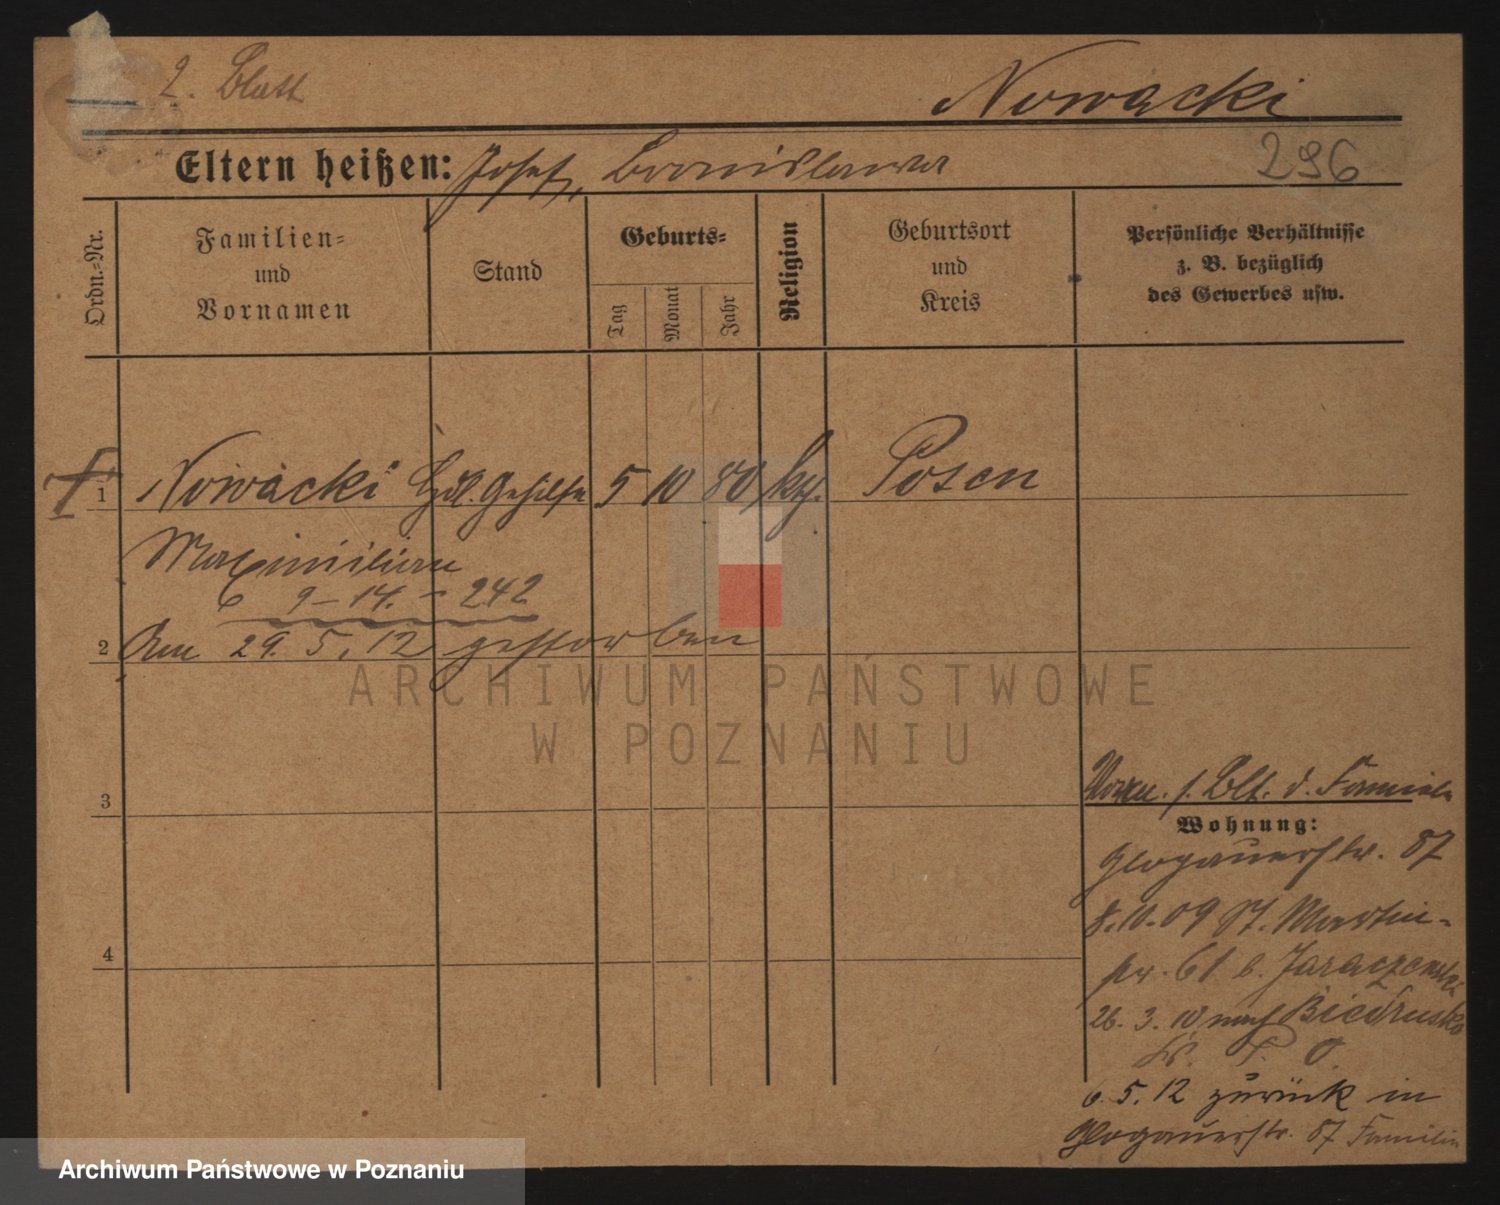 2. Blatt
Nowacki
Eltern heißen: Josef, Bronislawa
296
Ordn.-Nr.
Familien-
und
Vornamen
Stand
Geburts-
Tag
Monat
Jahr
Religion
Geburtsort
und
Kreis
Persönliche Verhältnisse
z. B. bezüglich
des Gewerbes usw.
1 Nowacki Hdl. Gehilfe 5 10 80 kth. Posen
Maximilian
6 9-14. - 242
2 Am 29. 5. 12 gestorben
ARCHIWUM PAŃSTWOWE
W POZNANIU
3
s. Blt. d. Familie
Wohnung:
Glogauerstr. 87
8.10.09 St. Martin-
str. 61 b. Jaraczewski
26. 3. 10 nach Biedrusko
Kr. P. O.
6. 5. 12 zurück in
Glogauerstr. 87 Familie
4
Archiwum Państwowe w Poznaniu